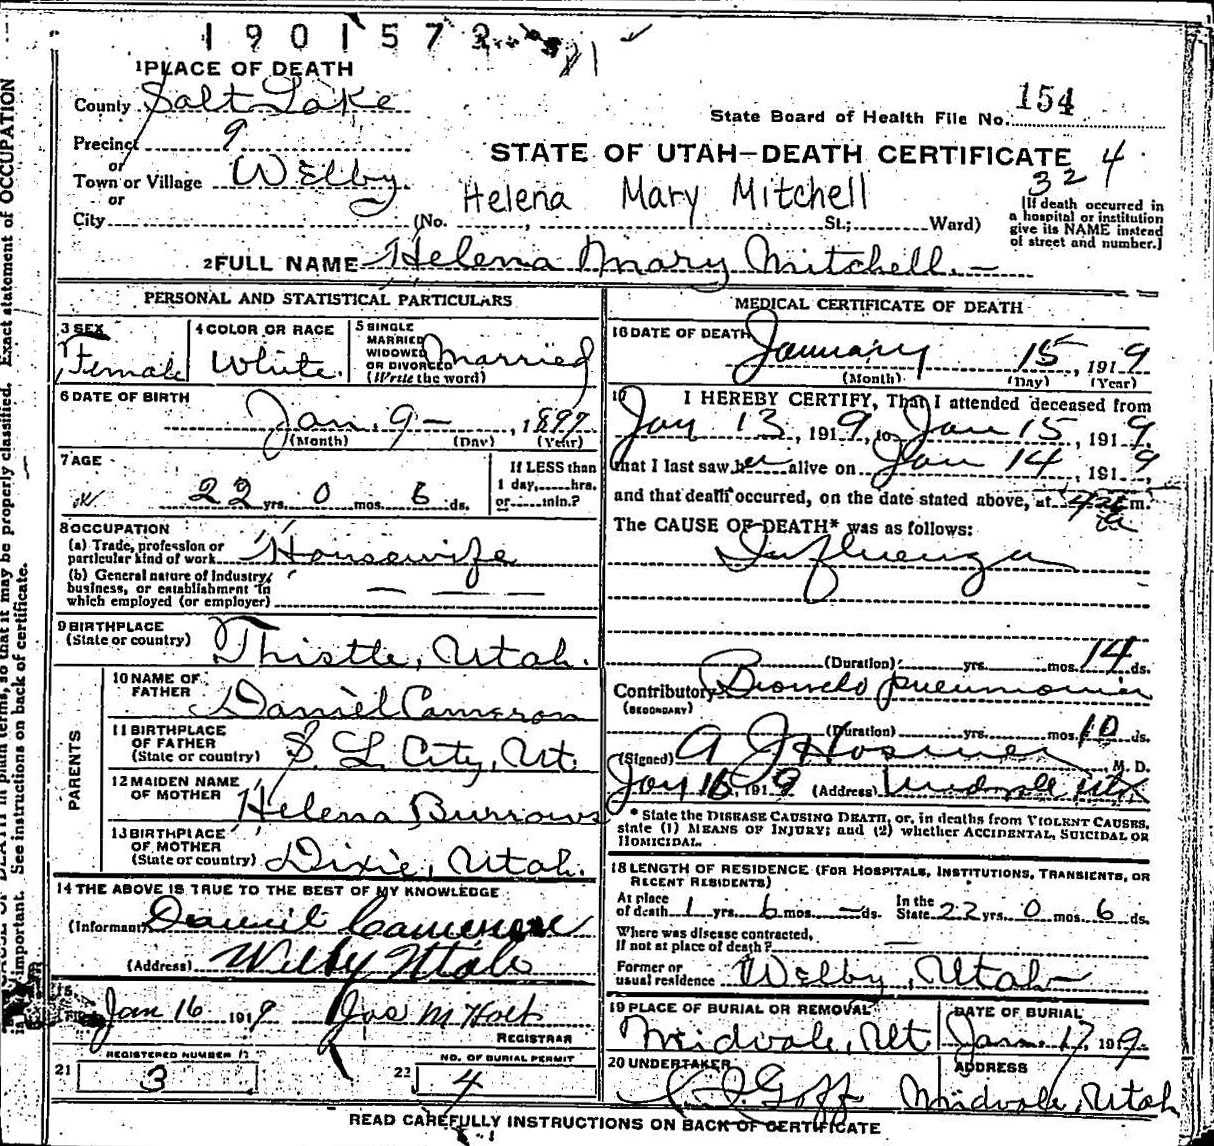 1901572
1 PLACE OF DEATH
County Salt Lake
State Board of Health File No. 154
Precinct 9
or
STATE OF UTAH—DEATH CERTIFICATE 4
Town or Village Welby
324
or
Helena Mary Mitchell
City (No. , St.; Ward)
[If death occurred in
a hospital or institution
give its NAME instead
of street and number.]
2 FULL NAME Helena Mary Mitchell.
PERSONAL AND STATISTICAL PARTICULARS
3 SEX
Female
4 COLOR OR RACE
White.
5 SINGLE
MARRIED
WIDOWED
OR DIVORCED
(Write the word)
Married
6 DATE OF BIRTH
Jan. 9 — , 1897
(Month) (Day) (Year)
7 AGE
22 yrs. 0 mos. 6 ds.
If LESS than
1 day, hrs.
or min.?
8 OCCUPATION
(a) Trade, profession or
particular kind of work Housewife
(b) General nature of industry,
business, or establishment in
which employed (or employer)
9 BIRTHPLACE
(State or country) Thistle, Utah.
PARENTS
10 NAME OF
FATHER Daniel Cameron
11 BIRTHPLACE
OF FATHER
(State or country) S. L. City, Ut.
12 MAIDEN NAME
OF MOTHER Helena Burrows
13 BIRTHPLACE
OF MOTHER
(State or country) Dixie, Utah.
14 THE ABOVE IS TRUE TO THE BEST OF MY KNOWLEDGE
(Informant) Daniel Cameron
(Address) Welby Utah
Jan 16 1919 Jas M Holt
REGISTRAR
REGISTERED NUMBER
21 3
NO. OF BURIAL PERMIT
22 4
MEDICAL CERTIFICATE OF DEATH
16 DATE OF DEATH
January 15, 1919
(Month) (Day) (Year)
17 I HEREBY CERTIFY, That I attended deceased from
Jan 13, 1919, to Jan 15, 1919,
that I last saw her alive on Jan 14, 1919,
and that death occurred, on the date stated above, at m.
The CAUSE OF DEATH* was as follows:
Influenza
(Duration) yrs. mos. 14 ds.
Contributory Broncho pneumonia
(SECONDARY)
(Duration) yrs. mos. 10 ds.
(Signed) A J Hosmer M. D.
Jan 16, 1919 (Address) Midvale Utah
* State the DISEASE CAUSING DEATH, or, in deaths from VIOLENT CAUSES,
state (1) MEANS OF INJURY; and (2) whether ACCIDENTAL, SUICIDAL OR
HOMICIDAL.
18 LENGTH OF RESIDENCE (FOR HOSPITALS, INSTITUTIONS, TRANSIENTS, OR
RECENT RESIDENTS)
At place
of death 1 yrs. 6 mos. — ds.
In the
State 22 yrs. 0 mos. 6 ds.
Where was disease contracted,
if not at place of death? —
Former or
usual residence Welby, Utah
19 PLACE OF BURIAL OR REMOVAL
Midvale, Ut.
DATE OF BURIAL
Jan. 17, 1919.
20 UNDERTAKER
Goff
ADDRESS
Midvale, Utah
READ CAREFULLY INSTRUCTIONS ON BACK OF CERTIFICATE
DEATH in plain terms, so that it may be properly classified. Exact statement of OCCUPATION
important. See instructions on back of certificate.